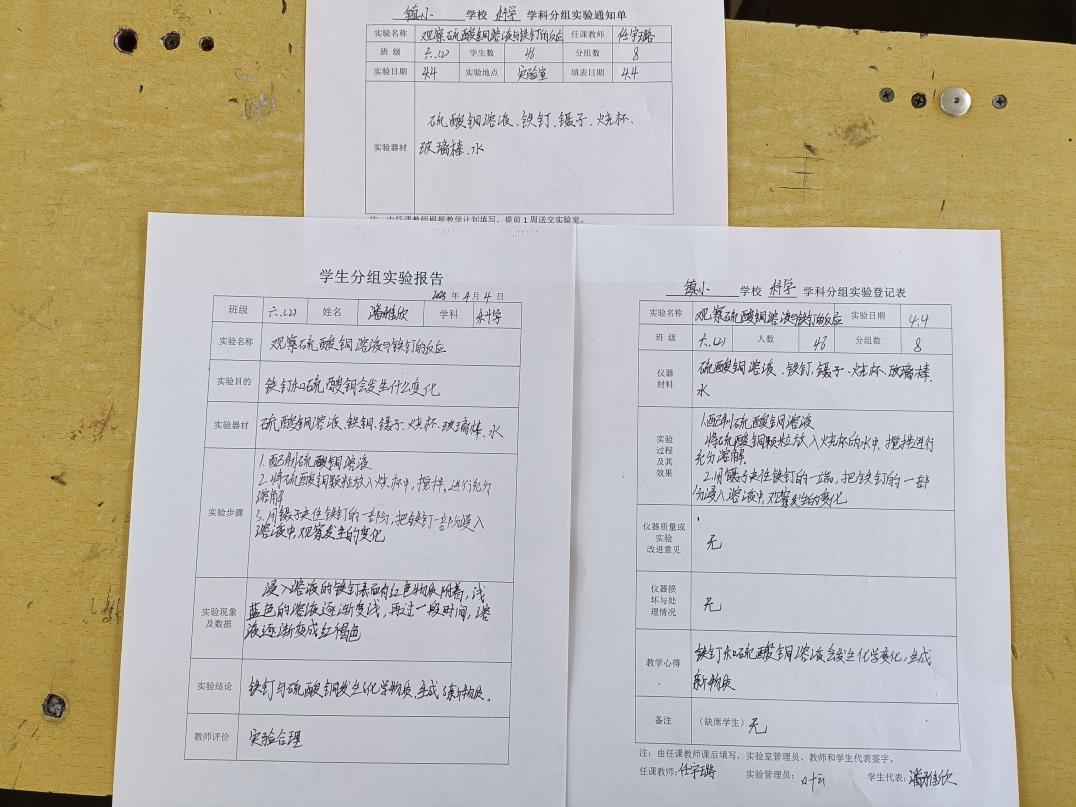 镇小 学校 科学 学科分组实验通知单
实验名称 观察硫酸铜溶液与铁钉的反应 任课教师 任宇璐
班 级 六.(2) 学生数 46 分组数 8
实验日期 4.4 实验地点 实验室 填表日期 4.4
实验器材
硫酸铜溶液、铁钉、镊子、烧杯、
玻璃棒、水
注:由任课教师根据教学计划填写,提前1周送交实验室。
学生分组实验报告
2023 年 4 月 4 日
班级 六.(2) 姓名 潘雅欣 学科 科学
实验名称 观察硫酸铜溶液与铁钉的反应
实验目的 铁钉和硫酸铜会发生什么变化
实验器材 硫酸铜溶液、铁铜、镊子、烧杯、玻璃棒、水
实验步骤
1.配制硫酸铜溶液
2.将硫酸铜颗粒放入烧杯中,搅拌,进行充分
溶解
3.用镊子夹住铁钉的一部分,把铁钉一部分浸入
溶液中,观察发生的变化
实验现象
及数据
浸入溶液的铁钉表面有红色物质附着,浅
蓝色的溶液逐渐变浅,再过一段时间,溶
液逐渐变成红褐色
实验结论 铁钉与硫酸铜发生化学物质,生成了新物质。
教师评价 实验合理
镇小 学校 科学 学科分组实验登记表
实验名称 观察硫酸铜溶液与铁钉的反应 实验日期 4.4
班 级 六.(2) 人数 46 分组数 8
仪器
材料
硫酸铜溶液、铁钉、镊子、烧杯、玻璃棒、
水
实验
过程
及其
效果
1.配制硫酸铜溶液
将硫酸铜颗粒放入烧杯的水中,搅拌进行
充分溶解.
2.用镊子夹住铁钉的一端,把铁钉的一部
分浸入溶液中,观察发生的变化
仪器质量或
实验
改进意见
无
仪器损
坏与处
理情况
无
教学心得
铁钉和硫酸铜溶液会发生化学变化,生成
新物质
备注 (缺席学生)无
注:由任课教师课后填写,实验室管理员、教师和学生代表签字。
任课教师:任宇璐 实验管理员:叶云 学生代表:潘雅欣